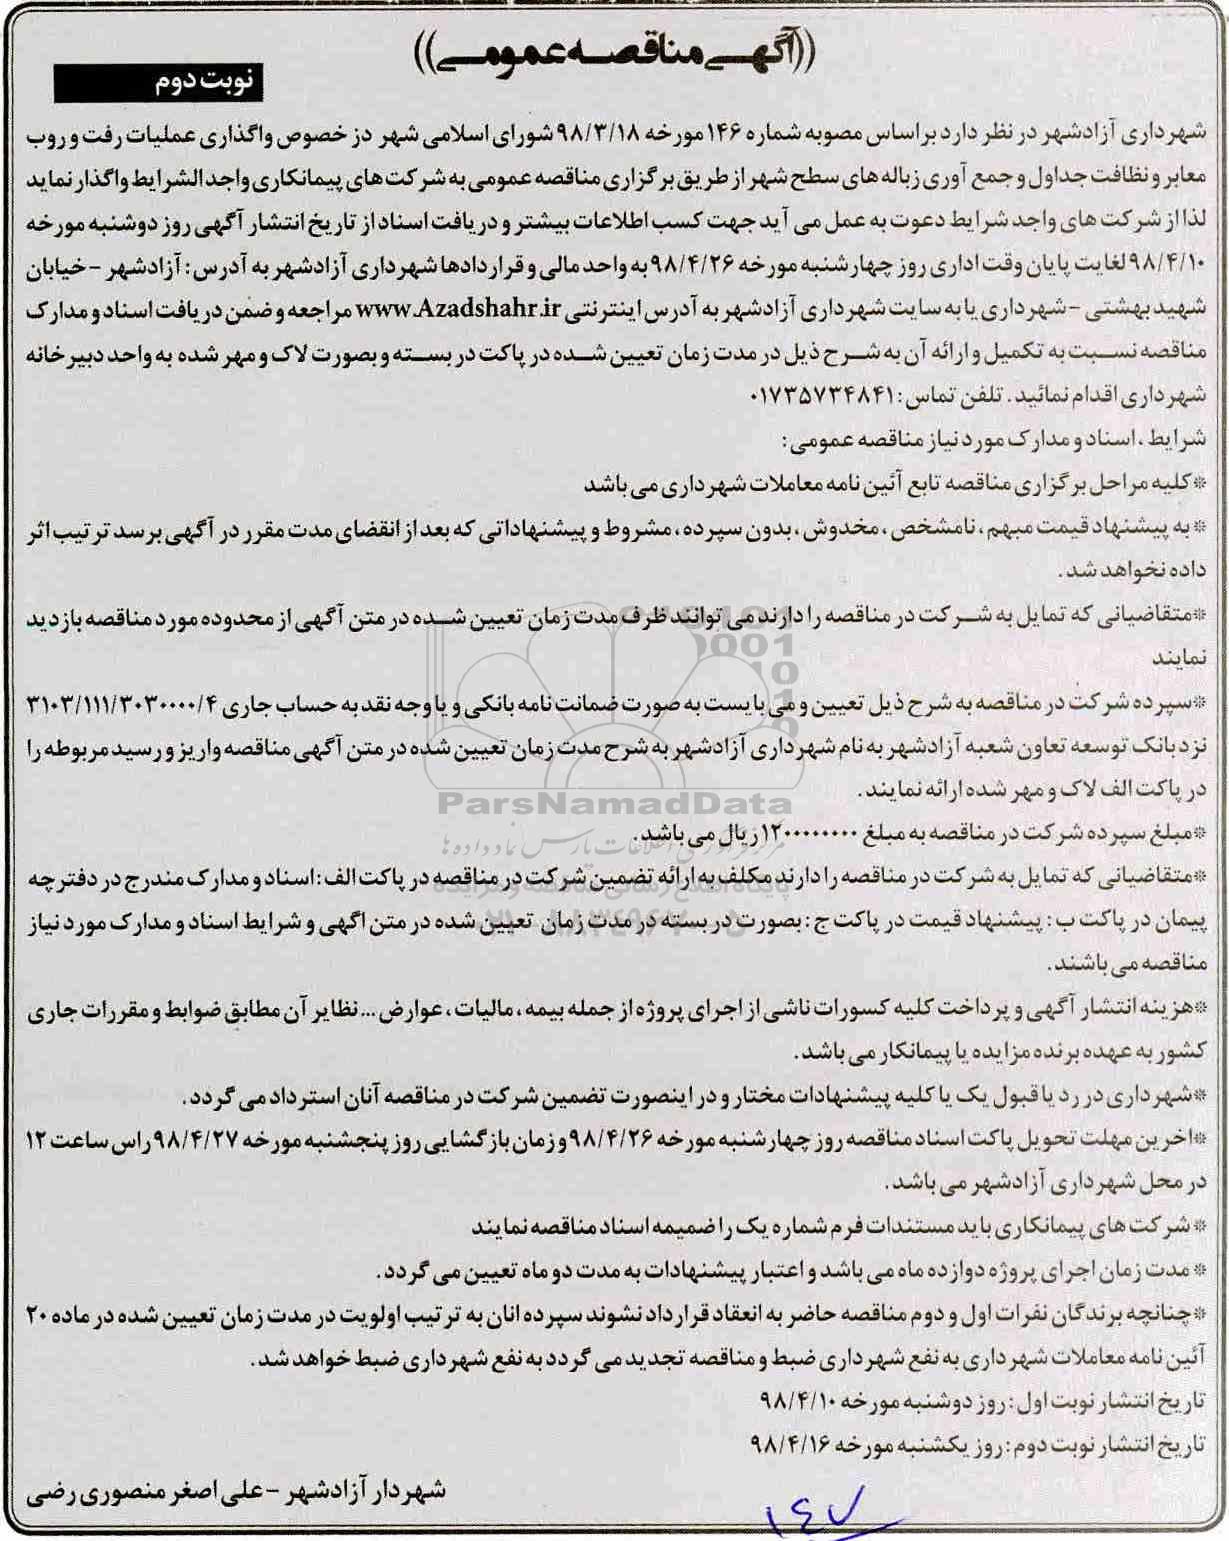 ((آگهی مناقصه عمومی))
نوبت دوم
شهرداری آزادشهر در نظر دارد براساس مصوبه شماره ۱۴۶ مورخه ۹۸/۳/۱۸ شورای اسلامی شهر دز خصوص واگذاری عملیات رفت و روب
معابر و نظافت جداول و جمع آوری زباله های سطح شهر از طریق برگزاری مناقصه عمومی به شرکت های پیمانکاری واجد الشرایط واگذار نماید
لذا از شرکت های واجد شرایط دعوت به عمل می آید جهت کسب اطلاعات بیشتر و دریافت اسناد از تاریخ انتشار آگهی روز دوشنبه مورخه
۹۸/۴/۱۰ لغایت پایان وقت اداری روز چهارشنبه مورخه ۹۸/۴/۲۶ به واحد مالی و قراردادها شهرداری آزادشهر به آدرس: آزادشهر - خیابان
شهید بهشتی - شهرداری یا به سایت شهرداری آزادشهر به آدرس اینترنتی www.Azadshahr.ir مراجعه و ضمن دریافت اسناد و مدارک
مناقصه نسبت به تکمیل و ارائه آن به شرح ذیل در مدت زمان تعیین شده در پاکت در بسته و بصورت لاک و مهر شده به واحد دبیرخانه
شهرداری اقدام نمائید. تلفن تماس: ۰۱۷۳۵۷۳۴۸۴۱
شرایط، اسناد و مدارک مورد نیاز مناقصه عمومی:
*کلیه مراحل برگزاری مناقصه تابع آئین نامه معاملات شهرداری می باشد
* به پیشنهاد قیمت مبهم، نامشخص، مخدوش، بدون سپرده، مشروط و پیشنهاداتی که بعد از انقضای مدت مقرر در آگهی برسد ترتیب اثر
داده نخواهد شد.
*متقاضیانی که تمایل به شرکت در مناقصه را دارند می توانند ظرف مدت زمان تعیین شده در متن آگهی از محدوده مورد مناقصه بازدید
نمایند
*سپرده شرکت در مناقصه به شرح ذیل تعیین و می بایست به صورت ضمانت نامه بانکی و یا وجه نقد به حساب جاری ۳۱۰۳/۱۱۱/۳۰۳۰۰۰۰/۴
نزد بانک توسعه تعاون شعبه آزادشهر به نام شهرداری آزادشهر به شرح مدت زمان تعیین شده در متن آگهی مناقصه واریز و رسید مربوطه را
در پاکت الف لاک و مهر شده ارائه نمایند.
ParsNamadData
*مبلغ سپرده شرکت در مناقصه به مبلغ ۱۲۰۰۰۰۰۰۰۰ ریال می باشد.
*متقاضیانی که تمایل به شرکت در مناقصه را دارند مکلف به ارائه تضمین شرکت در مناقصه در پاکت الف: اسناد و مدارک مندرج در دفترچه
پیمان در پاکت ب: پیشنهاد قیمت در پاکت ج: بصورت در بسته در مدت زمان تعیین شده در متن اگهی و شرایط اسناد و مدارک مورد نیاز
مناقصه می باشند.
*هزینه انتشار آگهی و پرداخت کلیه کسورات ناشی از اجرای پروژه از جمله بیمه، مالیات، عوارض ... نظایر آن مطابق ضوابط و مقررات جاری
کشور به عهده برنده مزایده یا پیمانکار می باشد.
*شهرداری در رد یا قبول یک یا کلیه پیشنهادات مختار و در اینصورت تضمین شرکت در مناقصه آنان استرداد می گردد.
*اخرین مهلت تحویل پاکت اسناد مناقصه روز چهارشنبه مورخه ۹۸/۴/۲۶ و زمان بازگشایی روز پنجشنبه مورخه ۹۸/۴/۲۷ راس ساعت ۱۲
در محل شهرداری آزادشهر می باشد.
* شرکت های پیمانکاری باید مستندات فرم شماره یک را ضمیمه اسناد مناقصه نمایند
* مدت زمان اجرای پروژه دوازده ماه می باشد و اعتبار پیشنهادات به مدت دو ماه تعیین می گردد.
*چنانچه برندگان نفرات اول و دوم مناقصه حاضر به انعقاد قرارداد نشوند سپرده انان به ترتیب اولویت در مدت زمان تعیین شده در ماده ۲۰
آئین نامه معاملات شهرداری به نفع شهرداری ضبط و مناقصه تجدید می گردد به نفع شهرداری ضبط خواهد شد.
تاریخ انتشار نوبت اول: روز دوشنبه مورخه ۹۸/۴/۱۰
تاریخ انتشار نوبت دوم: روز یکشنبه مورخه ۹۸/۴/۱۶
شهردار آزادشهر - علی اصغر منصوری رضی
۱۴۷